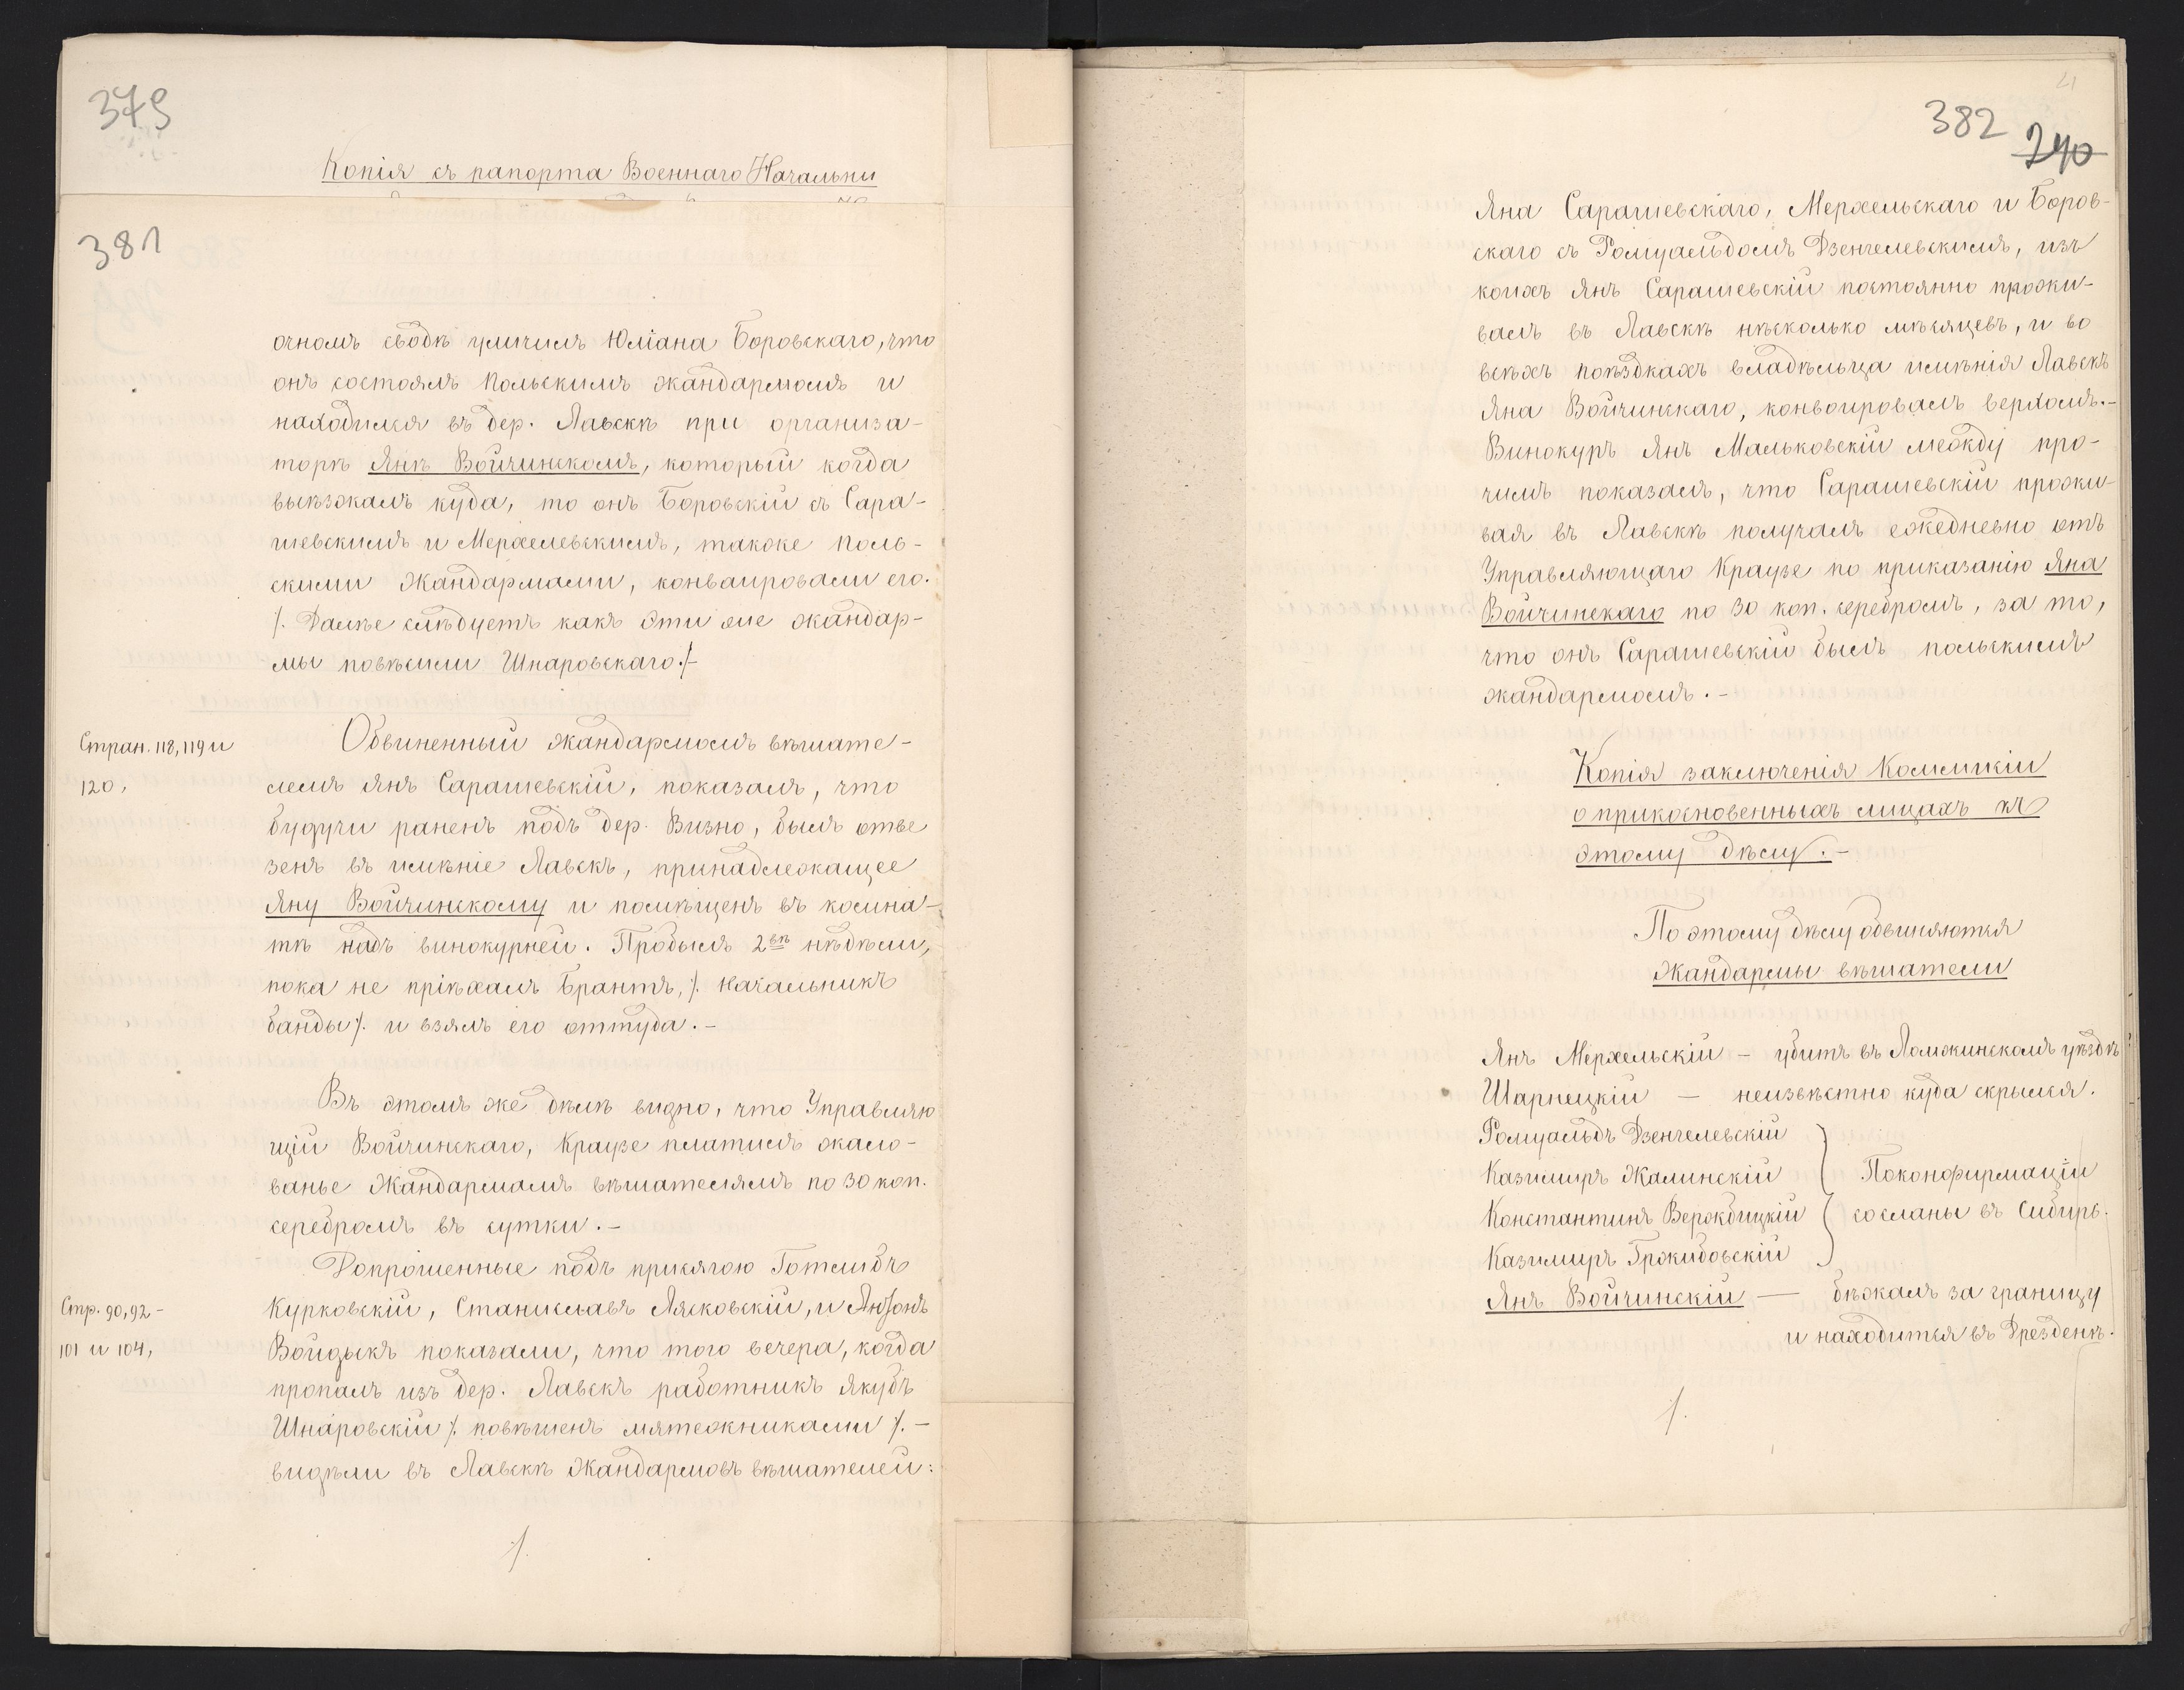 379
Копія съ рапорта Военнаго Начальни
381
очномъ сводѣ уличилъ Юліана Боровскаго, что
онъ состоялъ Польскимъ жандармомъ и
находился въ дер. Лавскѣ при организа-
торѣ Янѣ Войчинскомъ, который когда
выѣзжалъ куда, то онъ Боровскій съ Сара-
шевскимъ и Мерхелевскимъ, также поль-
скими Жандармами, конваировали его.
/. Далѣе слѣдуетъ какъ эти же жандар-
мы повѣсили Шнаровскаго ./-
Стран. 118, 119 и
120,
Обвиненный жандармомъ вѣшате-
лемъ Янъ Сарашевскій, показалъ, что
будучи раненъ подъ дер. Визно, былъ отве
зенъ въ имѣніе Лавскъ, принадлежащее
Яну Войчинскому и помѣщенъ въ комна-
тѣ надъ винокурней. Пробылъ 2вѣ нѣдѣли,
пока не пріѣхалъ Брантъ, /. начальникъ
банды /. и взялъ его оттуда. -
Въ этомъ же дѣлѣ видно, что Управляю
щій Войчинскаго, Краузе платилъ жало-
ванье Жандармамъ вѣшателямъ по 30 коп.
серебромъ въ сутки. -
Допрошенные подъ присягою Готлибъ
Стр. 90, 92 -
101 и 104,
Курковскій, Станиславъ Лясковскій, и Антонъ
Войдыкъ показали, что того вечера, когда
пропалъ изъ дер. Лавскъ работникъ Якубъ
Шнаровскій /. повѣшенъ мятежниками /. -
видѣли въ Лавскѣ Жандармовъ вѣшателей:
/.
21
382
240
Яна Сарашевскаго, Мерхельскаго и Боров-
скаго съ Ромуальдомъ Дзенгелевскимъ, изъ
коихъ Янъ Сарашевскій постоянно прожи-
валъ въ Лавскѣ нѣсколько мѣсяцевъ, и во
всѣхъ поѣздкахъ владѣльца имѣнія Лавскъ
Яна Войчинскаго, конвоировалъ верхомъ. -
Винокуръ Янъ Мальковскій между про-
чимъ показалъ, что Сарашевскій прожи-
вая въ Лавскѣ получалъ ежедневно отъ
Управляющаго Краузе по приказанію Яна
Войчинскаго по 30 коп. серебромъ, за то,
что онъ Сарашевскій былъ польскимъ
жандармомъ. -
Копія заключенія Коммисіи
о прикосновенныхъ лицахъ къ
этому дѣлу. -
По этому дѣлу обвиняются
Жандармы вѣшатели
Янъ Мерхельскій - убитъ въ Ломжинскомъ уѣздѣ
Шарнецкій - неизвѣстно куда скрылся.
Ромуальдъ Дзенгелевскій
Казимиръ Жалинскій По конфирмаціи
Константинъ Вержбицкій сосланы въ Сибирь.
Казимиръ Гржибовскій
Янъ Войчинскій - бѣжалъ за границу
и находится въ Дрезденѣ.
/.